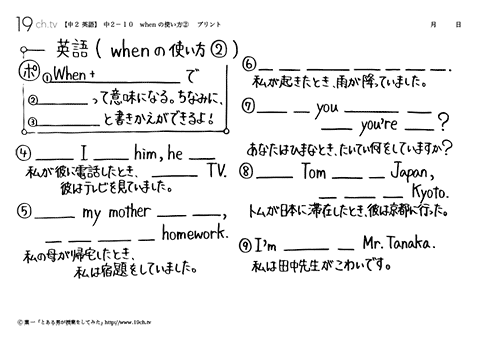 19 ch.tv 【中2 英語】 中2-10 whenの使い方② プリント 月 日
英語 ( whenの使い方② )
ポ ① When+ で
② って意味になる。ちなみに、
③ と書きかえができるよ!
④ I him, he TV.
私が彼に電話したとき、
彼はテレビを見ていました。
⑤ my mother ,
homework.
私の母が帰宅したとき、
私は宿題をしていました。
⑥ .
私が起きたとき、雨が降っていました。
⑦ you
you're ?
あなたはひまなとき、たいてい何をしていますか?
⑧ Tom Japan,
Kyoto.
トムが日本に滞在したとき、彼は京都に行った。
⑨ I'm Mr. Tanaka.
私は田中先生がこわいです。
© 葉一「とある男が授業をしてみた」http://www.19ch.tv